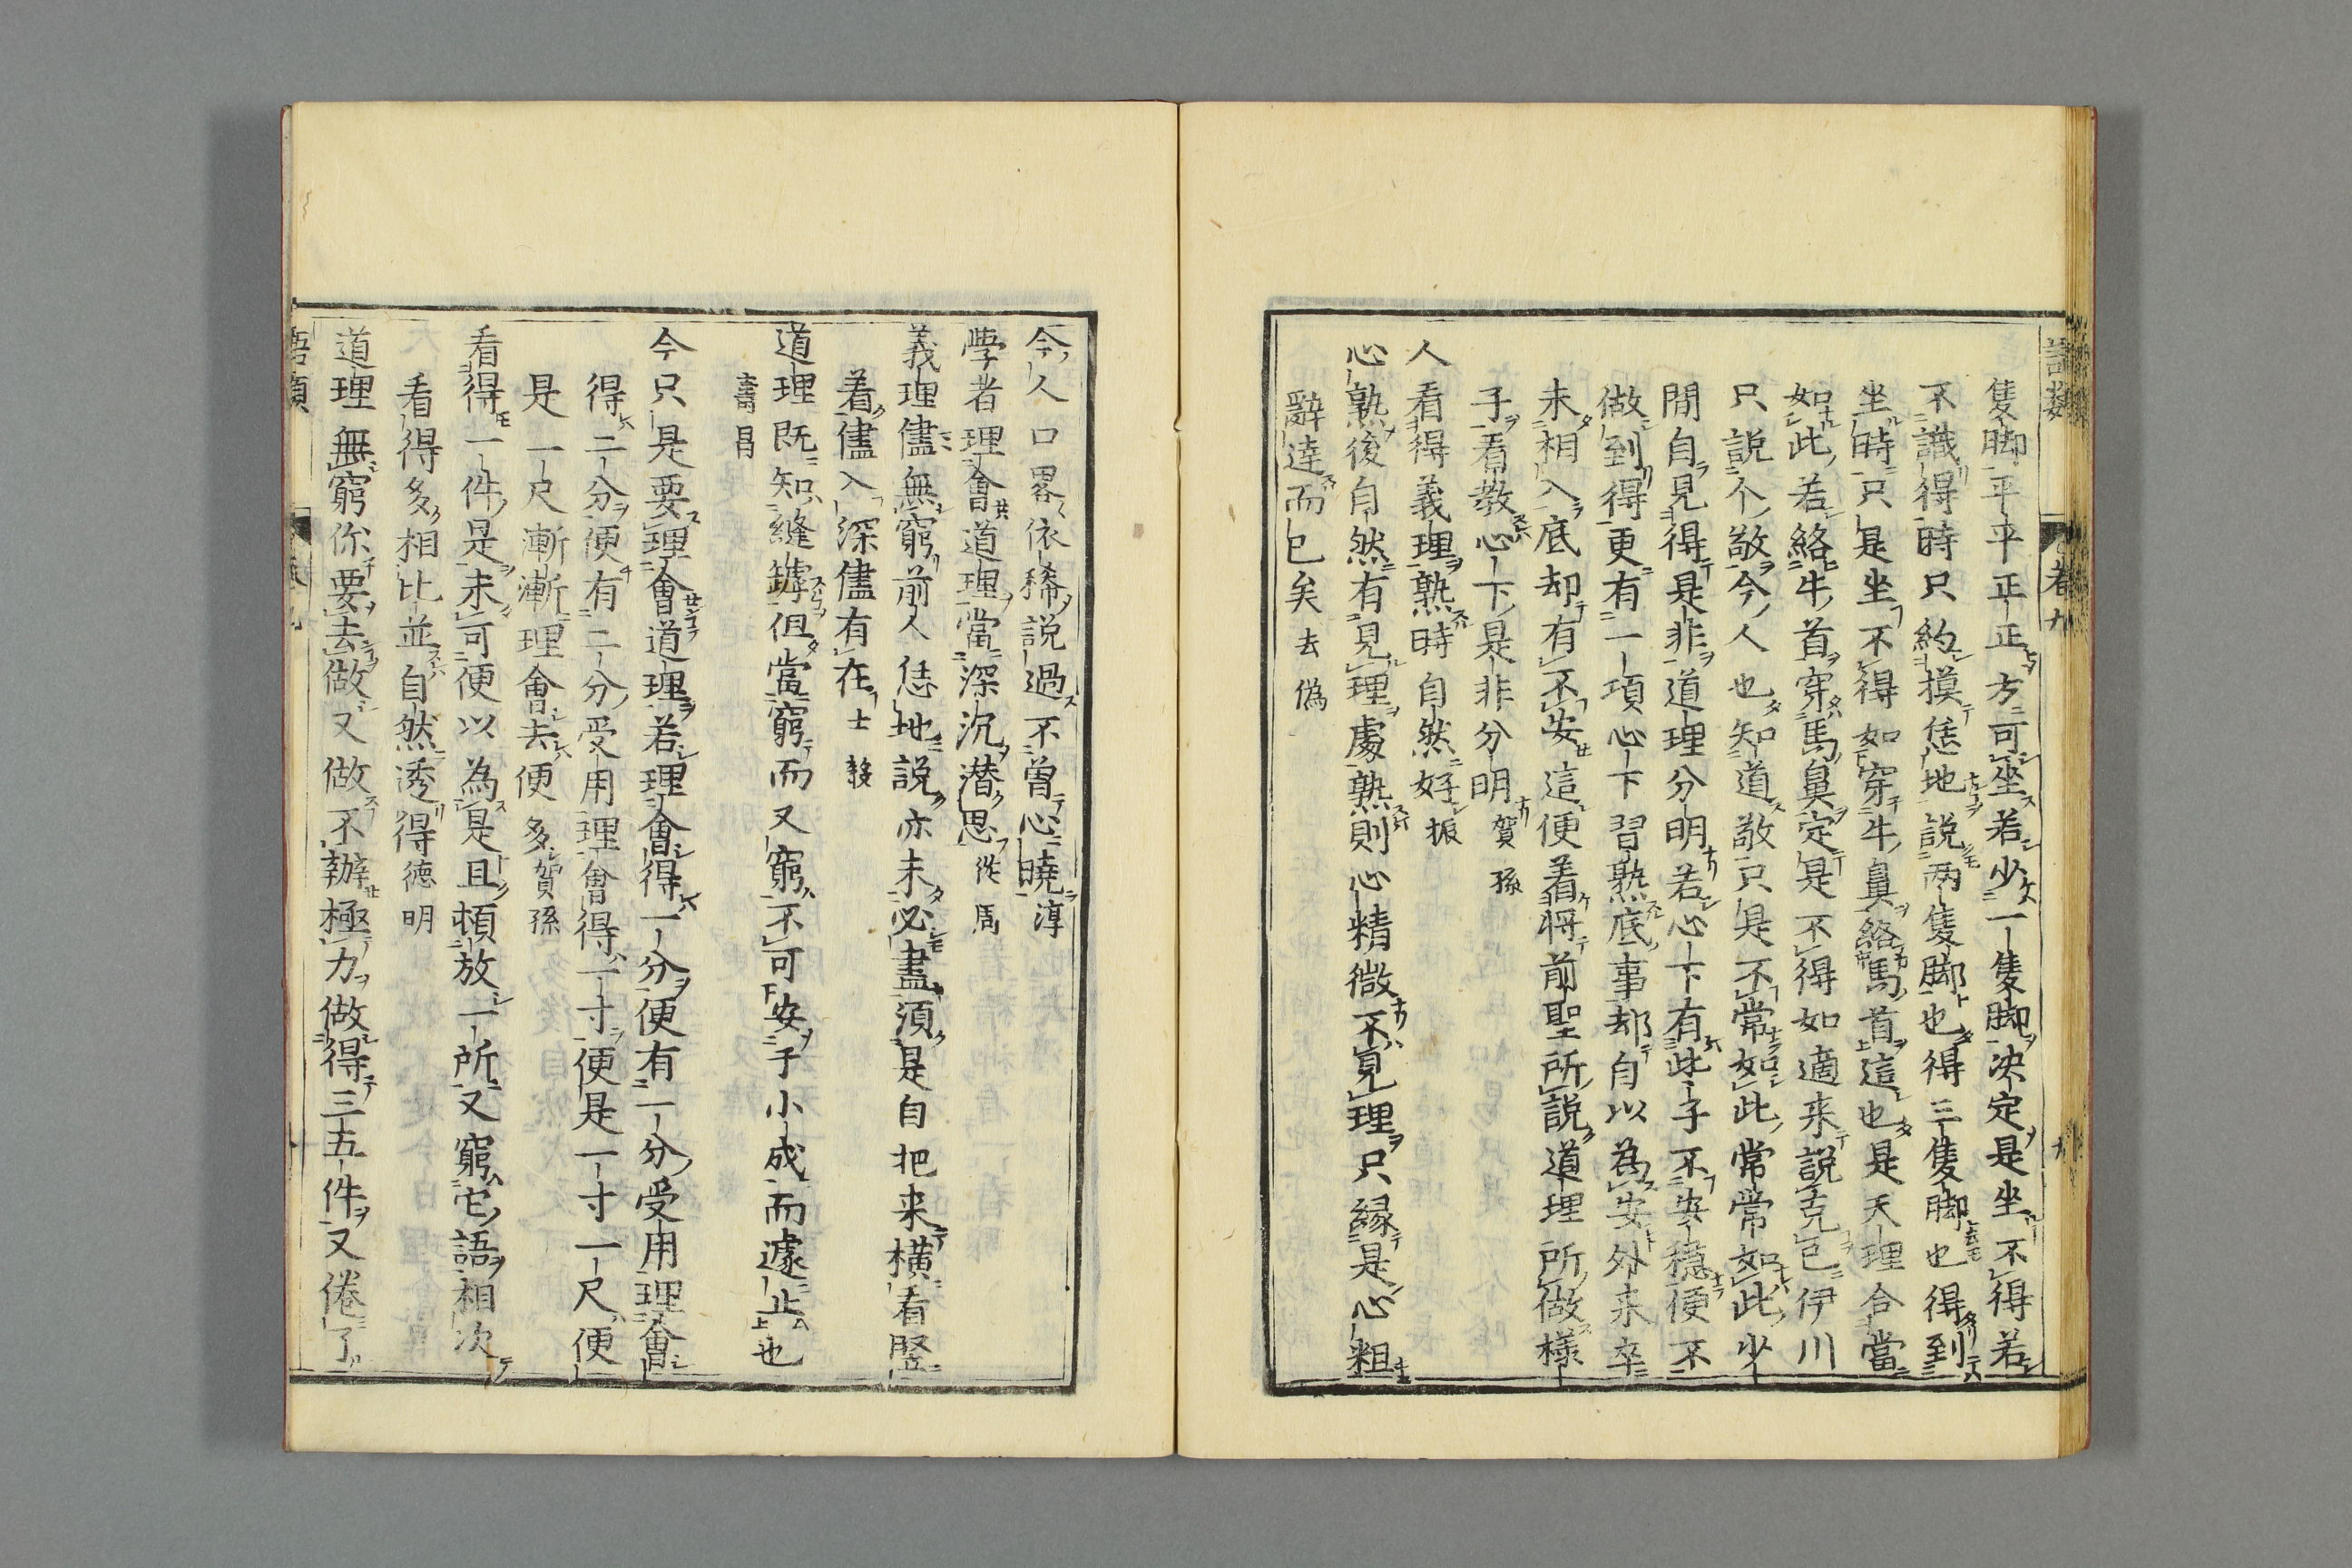 語類 卷九 九
隻脚平平正正方可坐若少一隻脚决定是坐不得若
不識得時只約摸恁地說两隻脚也得三隻脚也得到
坐時只是坐不得如穿牛鼻絡馬首這也是天理合當
如此若絡牛首穿馬鼻定是不得如適来說克已伊川
只說个敬今人也知道敬只是不常如此常常如此少
間自見得是非道理分明若心下有此子不安穩便不
做到得更有一項心下習熟底事却自以為安外来卒
未相入底却有不安這便着将前聖所說道理所做樣
子看教心下是非分明賀孫
人看得義理熟時自然好振
心熟後自然有見理處熟則心精微不見理只縁是心粗
辭達而已矣去偽
今人口畧依稀說過不曾心曉淳
學者理會道理當深沉潜思從周
義理儘無窮前人恁地說亦未必盡須是自把来橫看竪
着儘入深儘有在士毅
道理既知縫罅但當窮而又窮不可安于小成而遽止也
壽昌
今只是要理會道理若理會得一分便有一分受用理會
得二分便有二分受用理會得一寸便是一寸一尺便
是一尺漸漸理會去便多賀孫
看得一件是未可便以為是且頓放一所又窮它語相次
看得多相比並自然透得德明
道理無窮你要去做又做不辦極力做得三五件又倦了
語類